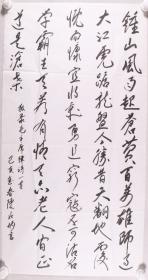 鍾山風雨起蒼黄百万雄師过
大江虎踞龙盘今勝昔天翻地覆
慨而慷宜将剩勇追窮寇不可沽名
学霸王天若有情天亦老人间正
道是滄桑
敬录毛主席律诗一首
己亥年春